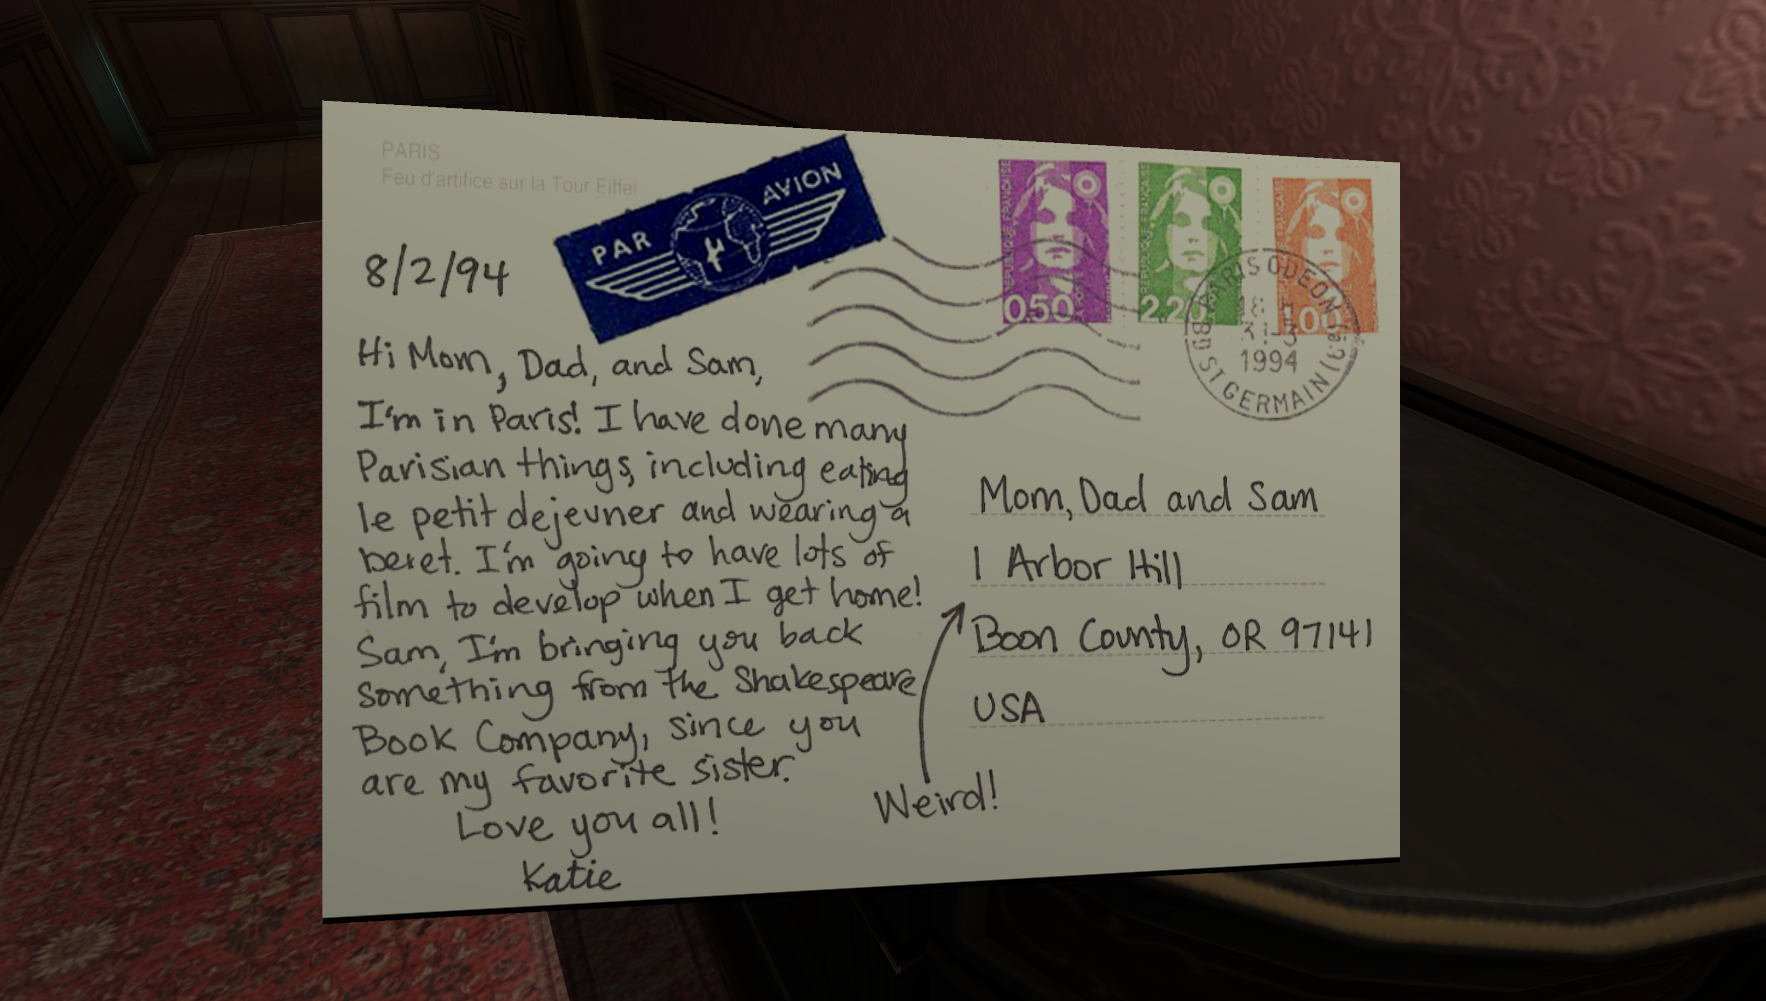 PARIS
Feu d'artifice sur la Tour Eiffel
PAR AVION
8/2/94
Hi Mom, Dad, and Sam,
I'm in Paris! I have done many
Parisian things, including eating
le petit dejeuner and wearing a
beret. I'm going to have lots of
film to develop when I get home!
Sam, I'm bringing you back
something from the Shakespeare
Book Company, since you
are my favorite sister.
Love you all!
Katie
REPUBLIQUE FRANÇAISE
0,50
REPUBLIQUE FRANÇAISE
2,20
1,00
PARIS ODEON
18
31-3
1994
BD ST GERMAIN
Mom, Dad and Sam
1 Arbor Hill
Boon County, OR 97141
USA
Weird!